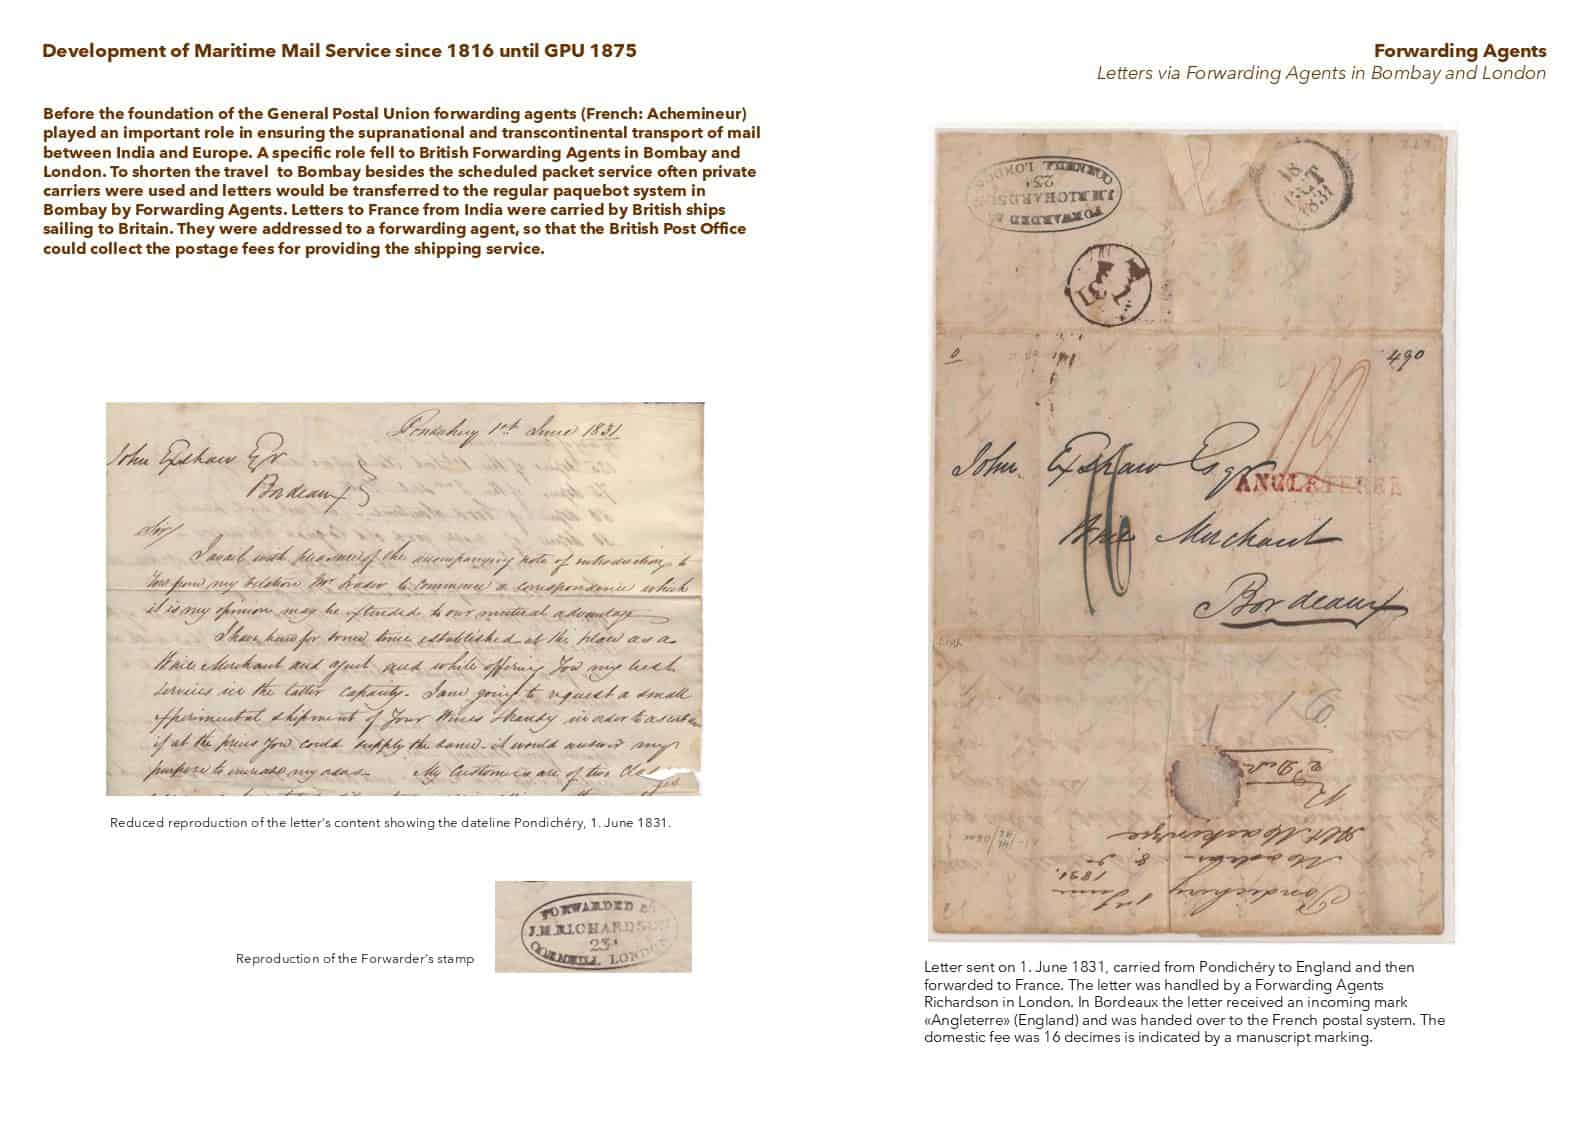 Development of Maritime Mail Service since 1816 until GPU 1875
Before the foundation of the General Postal Union forwarding agents (French: Achemineur)
played an important role in ensuring the supranational and transcontinental transport of mail
between India and Europe. A specific role fell to British Forwarding Agents in Bombay and
London. To shorten the travel to Bombay besides the scheduled packet service often private
carriers were used and letters would be transferred to the regular paquebot system in
Bombay by Forwarding Agents. Letters to France from India were carried by British ships
sailing to Britain. They were addressed to a forwarding agent, so that the British Post Office
could collect the postage fees for providing the shipping service.
Pondichery 1st June 1831
John Exshaw Esqr
Bordeaux
Sir
I avail with pleasure of the accompanying note of introduction to
You from my relation Mr Fraser to commence a correspondence which
it is my opinion may be extended to our mutual advantage
I have been for some time established at this place as a
Wine Merchant and agent, and while offering You my best
services in the latter capacity. I am going to request a small
experimental shipment of Your Wines & brandy in order to
if at the prices You could supply the same it would answer my
purpose to My Customers are of two
Reduced reproduction of the letter's content showing the dateline Pondichéry, 1. June 1831.
FORWARDED BY
J.H.RICHARDSON
23
CORNHILL LONDON
Reproduction of the Forwarder's stamp
Forwarding Agents
Letters via Forwarding Agents in Bombay and London
FORWARDED BY
J.H.RICHARDSON
23
CORNHILL LONDON
18
OCT
1831
490
John Exshaw Esqr
ANGLETERRE
16
Wine Merchant
Bordeaux
Pondichery 1st
June
1831.
Letter sent on 1. June 1831, carried from Pondichéry to England and then
forwarded to France. The letter was handled by a Forwarding Agents
Richardson in London. In Bordeaux the letter received an incoming mark
«Angleterre» (England) and was handed over to the French postal system. The
domestic fee was 16 decimes is indicated by a manuscript marking.